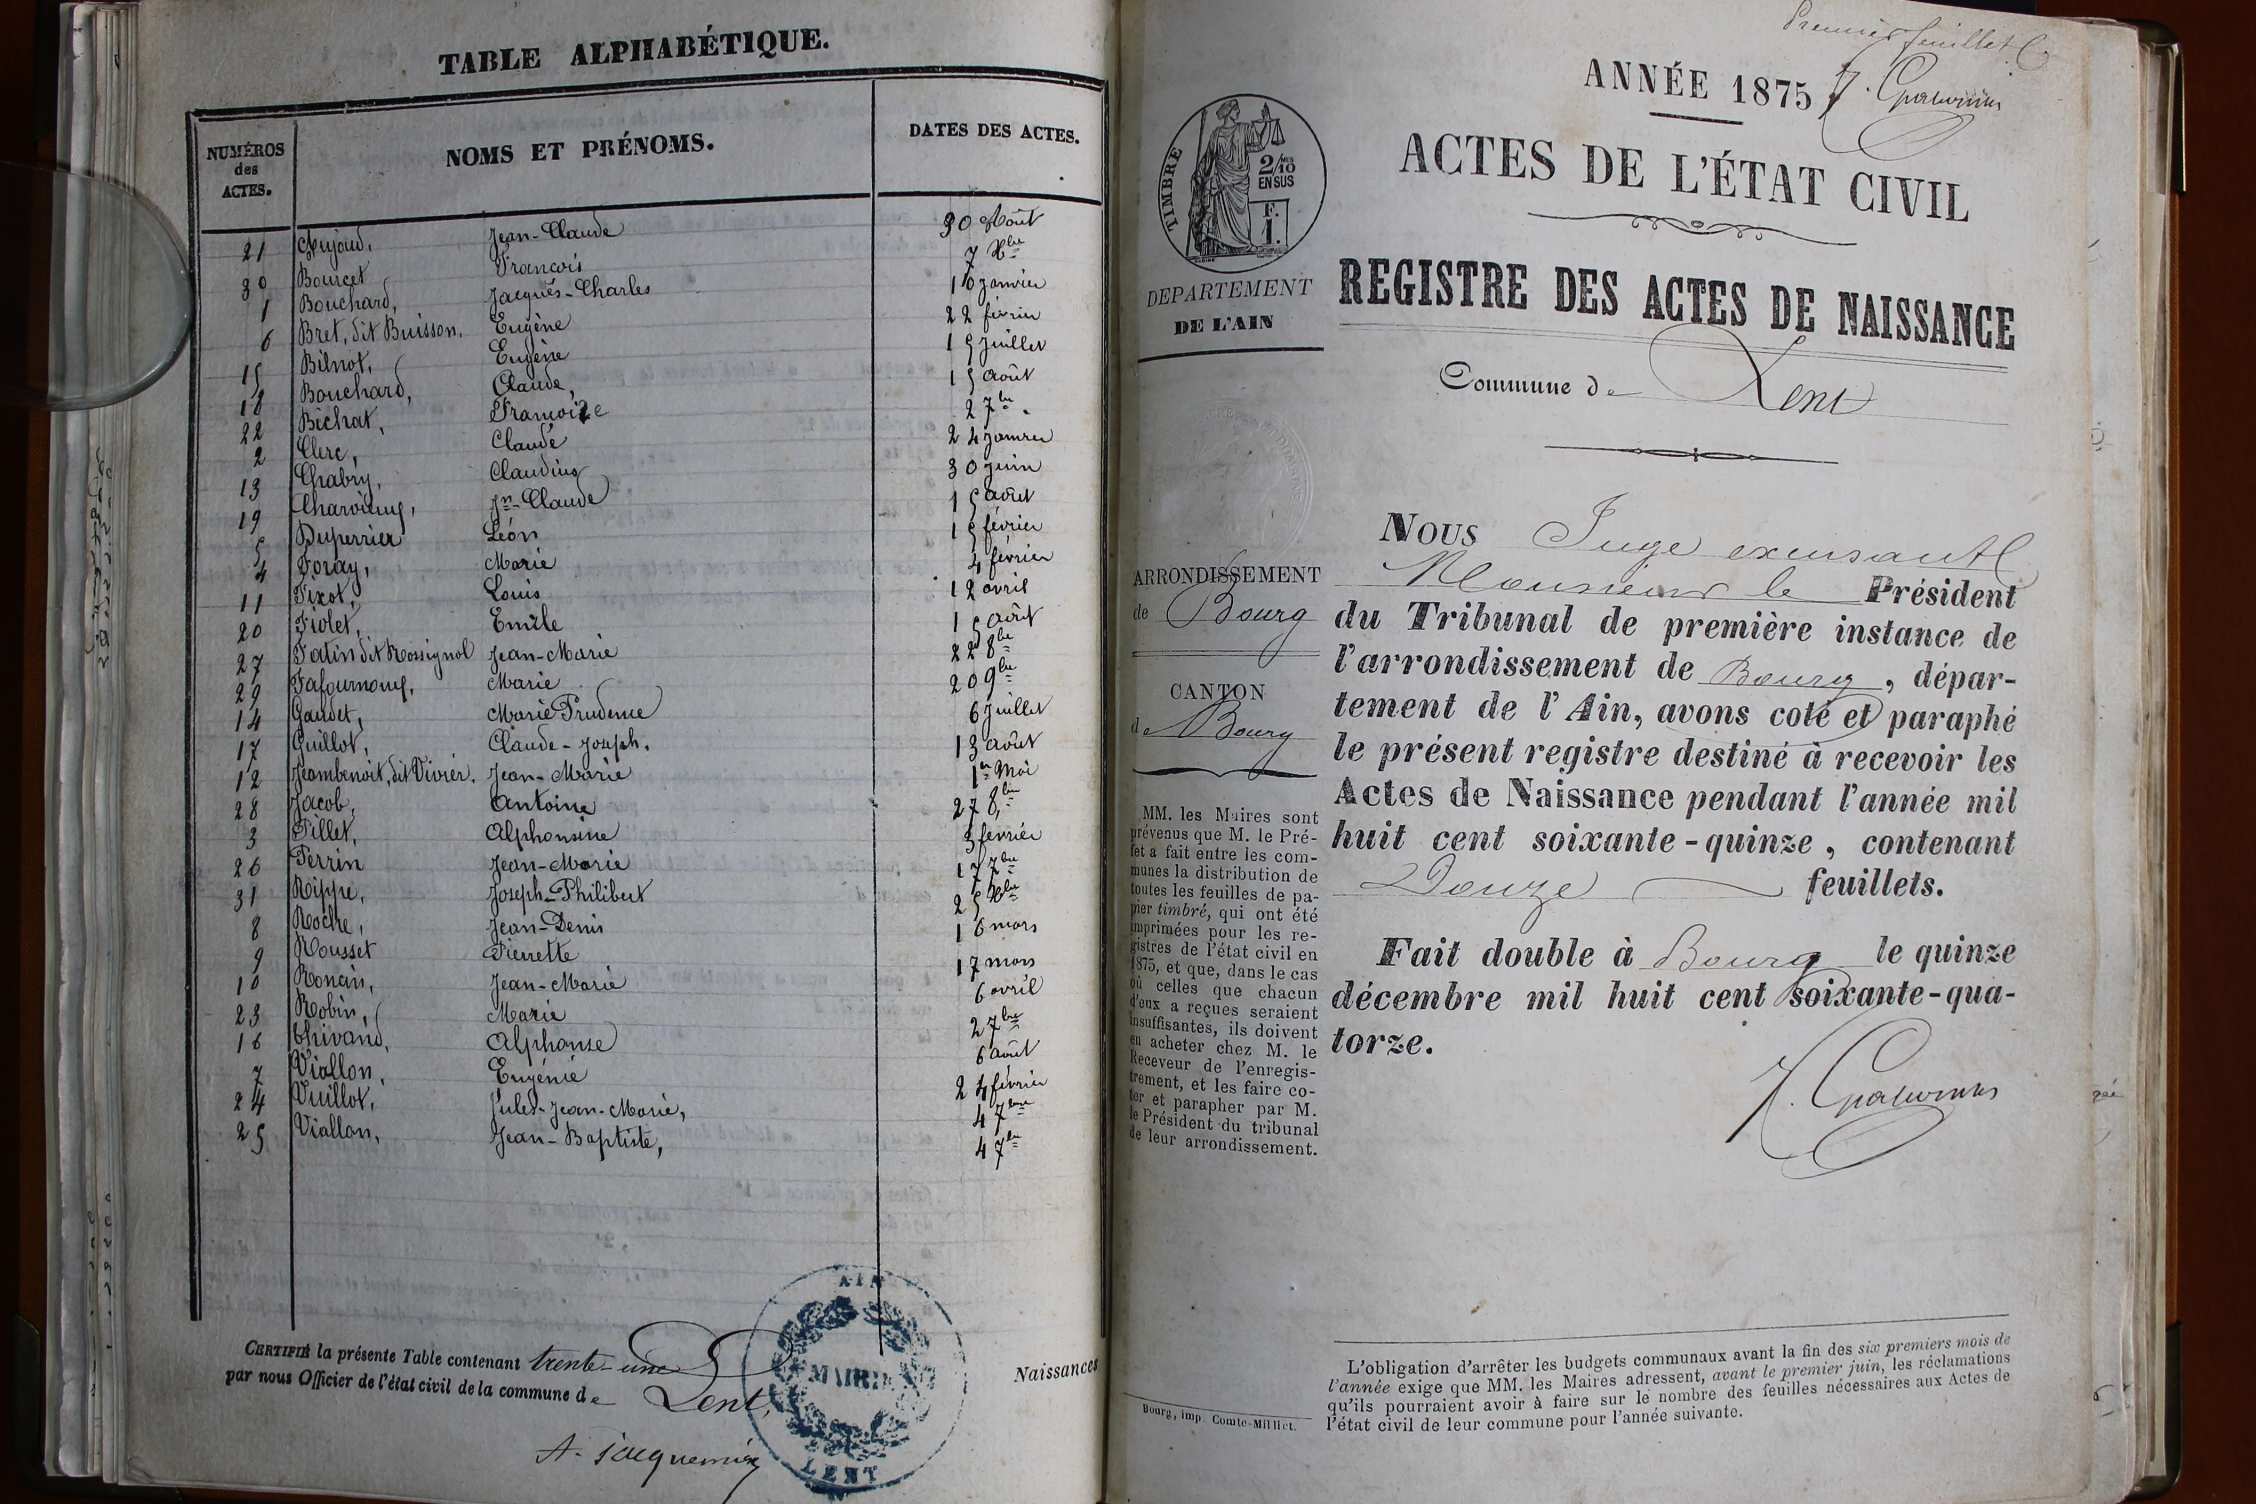 TABLE ALPHABÉTIQUE.
NUMÉROS des ACTES.
NOMS ET PRÉNOMS.
DATES DES ACTES.
21 Aujoud, Jean-Claude 30 Août
30 Bourcet François 7 Xbre
1 Bouchard, Jacques-Charles 16 janvier
6 Bret, dit Buisson, Eugène 22 février
15 Bilnot, Eugène 15 juillet
18 Bouchard, Claude, 15 août
22 Bichat, Françoise 2 7bre
2 Clerc, Claude 24 janvier
13 Chabry, Claudius 30 juin
19 Jn-Claude 15 août
5 Duperrier Léon 15 février
4 Foray, Marie 4 février
11 Fixot, Louis 12 avril
20 Fiolet, Emile 15 août
27 Fatin dit Rossignol Jean-Marie 22 8bre
29 Fafournoux, Marie 20 9bre
14 Gaudet, Marie Prudence 6 juillet
17 Guillot, Claude-Joseph. 13 août
12 Jeambenoit, dit Vivier, Jean-Marie 1er Mai
28 Jacob, Antoine 27 8bre
3 Pillet, Alphonsine 3 février
26 Perrin Jean-Marie 17 7bre
31 Rippe, Joseph-Philibert 25 Xbre
8 Roche, Jean-Denis 16 mars
9 Rousset Pierrette 17 mars
10 Roncin, Jean-Marie 6 avril
23 Robin, Marie 2 7bre
16 Thivand, Alphonse 6 août
7 Viallon, Eugénie 24 février
24 Vuillot, Jules-Jean-Marie, 4 7bre
25 Viallon, Jean-Baptiste, 4 7bre
CERTIFIÉ la présente Table contenant trente-une
par nous Officier de l'état civil de la commune de Lent,
Naissances
A. Jacquemin
AIN
MAIRIE
LENT
Premier feuillet
ANNÉE 1875
ACTES DE L'ÉTAT CIVIL
TIMBRE
2/10 EN SUS
F. 1.
DEPARTEMENT
DE L'AIN
REGISTRE DES ACTES DE NAISSANCE
Commune de Lent
NOUS Juge excusant
Monsieur le Président
du Tribunal de première instance de
l'arrondissement de Bourg, dépar-
tement de l'Ain, avons coté et paraphé
le présent registre destiné à recevoir les
Actes de Naissance pendant l'année mil
huit cent soixante-quinze, contenant
Douze feuillets.
Fait double à Bourg le quinze
décembre mil huit cent soixante-qua-
torze.
ARRONDISSEMENT
de Bourg
CANTON
de Bourg
MM. les Maires sont
prévenus que M. le Pré-
fet a fait entre les com-
munes la distribution de
toutes les feuilles de pa-
pier timbré, qui ont été
imprimées pour les re-
gistres de l'état civil en
1875, et que, dans le cas
où celles que chacun
d'eux a reçues seraient
insuffisantes, ils doivent
en acheter chez M. le
Receveur de l'enregis-
trement, et les faire co-
ter et parapher par M.
le Président du tribunal
de leur arrondissement.
Bourg, imp. Comte-Milliet.
L'obligation d'arrêter les budgets communaux avant la fin des six premiers mois de
l'année exige que MM. les Maires adressent, avant le premier juin, les réclamations
qu'ils pourraient avoir à faire sur le nombre des feuilles nécessaires aux Actes de
l'état civil de leur commune pour l'année suivante.